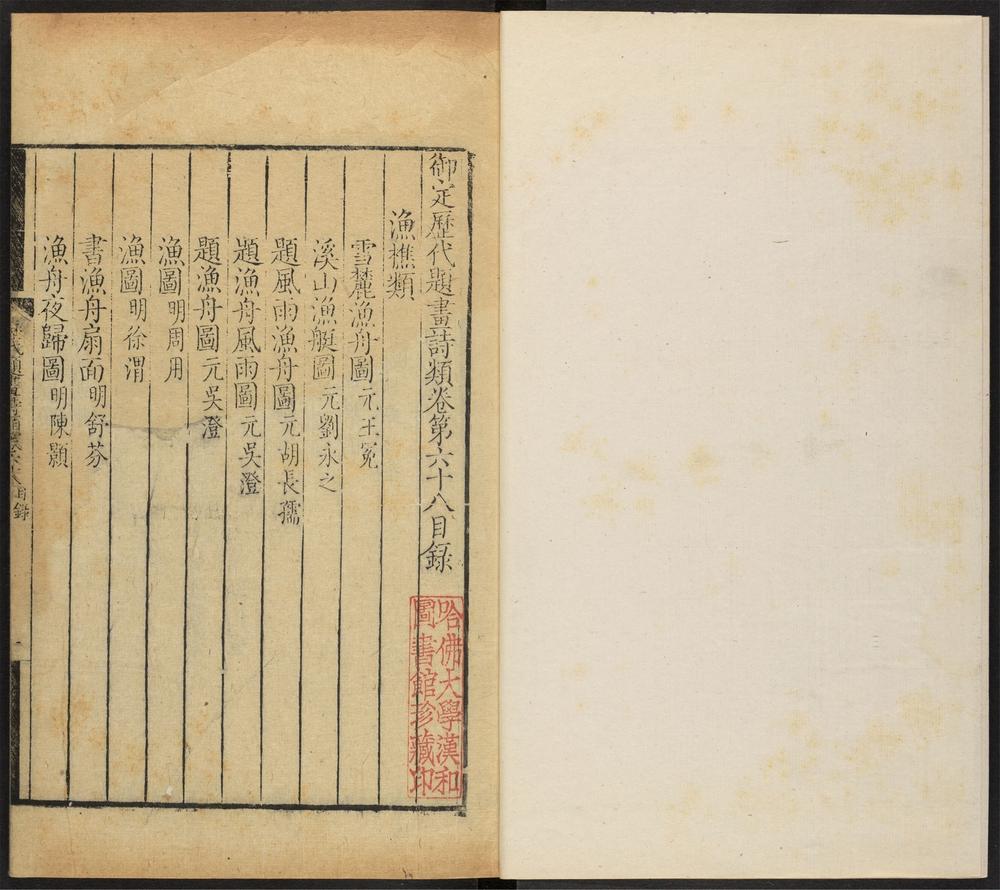 御定歷代題畫詩類卷第六十八目録
漁樵類
雪麓漁舟圖 元王冕
溪山漁艇圖 元劉永之
題風雨漁舟圖 元胡長孺
題漁舟風雨圖 元吳澄
題漁舟圖 元吳澄
漁圖 明周用
漁圖 明徐渭
書漁舟扇面 明舒芬
漁舟夜歸圖 明陳顥
哈佛大學漢和
圖書館珍藏印
目録